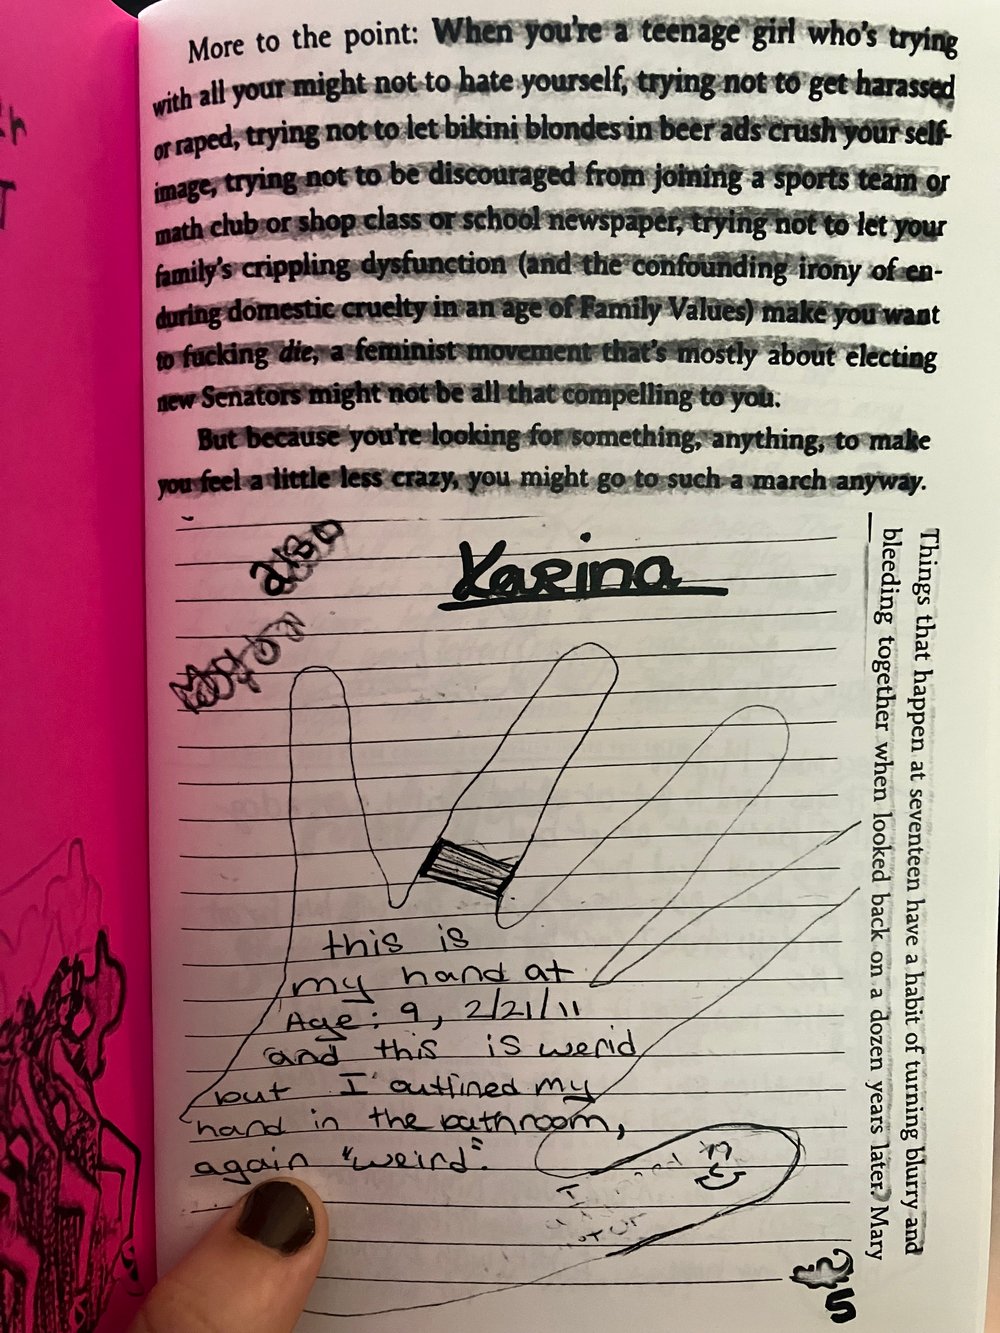 More to the point: When you're a teenage girl who's trying
with all your might not to hate yourself, trying not to get harassed
or raped, trying not to let bikini blondes in beer ads crush your self-
image, trying not to be discouraged from joining a sports team or
math club or shop class or school newspaper, trying not to let your
family's crippling dysfunction (and the confounding irony of en-
during domestic cruelty in an age of Family Values) make you want
to fucking die, a feminist movement that's mostly about electing
new Senators might not be all that compelling to you.
But because you're looking for something, anything, to make
you feel a little less crazy, you might go to such a march anyway.
Karina
this is
my hand at
Age: 9, 2/21/11
and this is werid
but I outlined my
hand in the bathroom,
again "weird".
I
Things that happen at seventeen have a habit of turning blurry and
bleeding together when looked back on a dozen years later. Mary